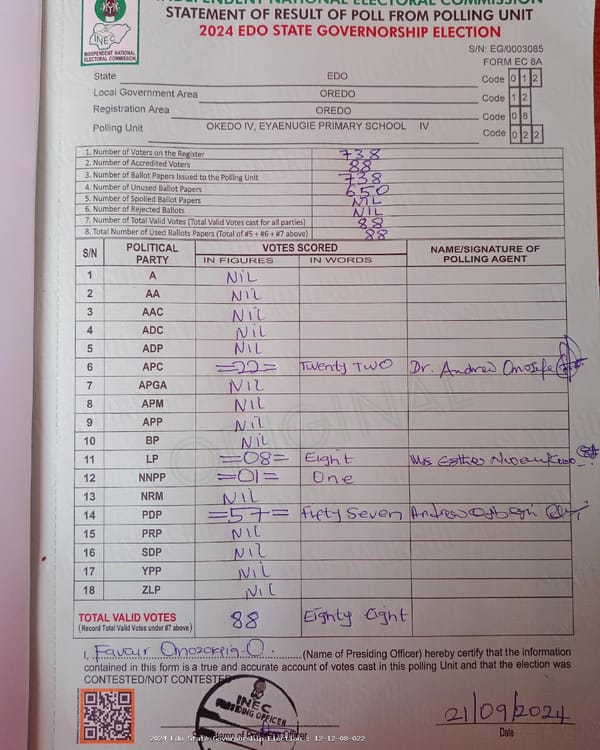 INDEPENDENT NATIONAL ELECTORAL COMMISSION
STATEMENT OF RESULT OF POLL FROM POLLING UNIT
2024 EDO STATE GOVERNORSHIP ELECTION
INEC
INDEPENDENT NATIONAL
ELECTORAL COMMISSION
S/N: EG/0003085
FORM EC 8A
State EDO Code 0 1 2
Local Government Area OREDO Code 1 2
Registration Area OREDO Code 0 8
Polling Unit OKEDO IV, EYAENUGIE PRIMARY SCHOOL IV Code 0 2 2
1. Number of Voters on the Register 738
2. Number of Accredited Voters 88
3. Number of Ballot Papers Issued to the Polling Unit 738
4. Number of Unused Ballot Papers 650
5. Number of Spoiled Ballot Papers NIL
6. Number of Rejected Ballots NIL
7. Number of Total Valid Votes (Total Valid Votes cast for all parties) 88
8. Total Number of Used Ballots Papers (Total of #5 + #6 + #7 above) 88
S/N POLITICAL PARTY VOTES SCORED NAME/SIGNATURE OF POLLING AGENT
IN FIGURES IN WORDS
1 A NIL
2 AA NIL
3 AAC NIL
4 ADC NIL
5 ADP NIL
6 APC =22= Twenty Two Dr. Andrew
7 APGA NIL
8 APM NIL
9 APP NIL
10 BP NIL
11 LP =08= Eight Mrs Esther
12 NNPP =01= One
13 NRM NIL
14 PDP =57= Fifty Seven Andrew
15 PRP NIL
16 SDP NIL
17 YPP NIL
18 ZLP NIL
ORIGINAL
TOTAL VALID VOTES 88 Eighty Eight
(Record Total Valid Votes under #7 above)
I, Favour O. (Name of Presiding Officer) hereby certify that the information
contained in this form is a true and accurate account of votes cast in this polling Unit and that the election was
CONTESTED/NOT CONTESTED
INEC
PRESIDING OFFICER
21/09/2024
Date
2024 Edo State Governorship Election : 12-12-08-022